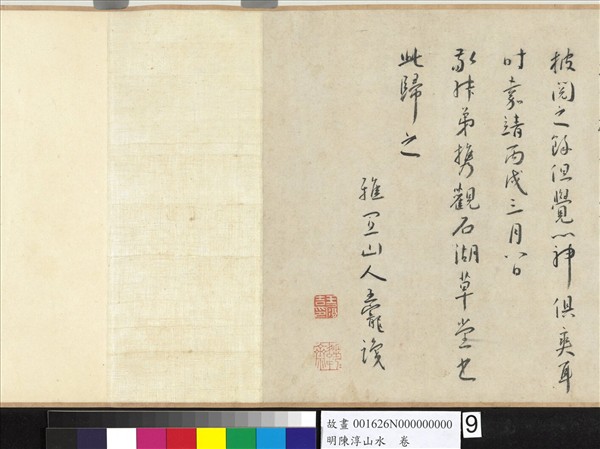 披閱之餘但覺心神俱爽耳
时嘉靖丙戌三月八日
弟攜觀石湖草堂書
此歸之
雅宜山人王寵
王履吉印
故畫 001626N000000000
明陳淳山水 卷
9